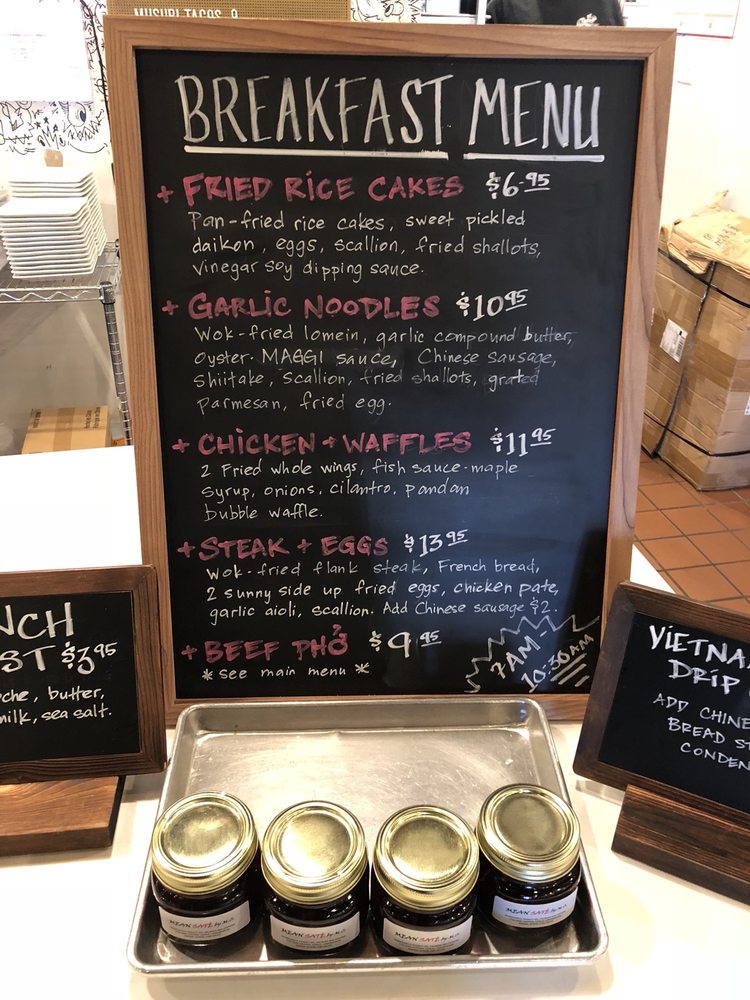 MUSUBI TACOS 9
BREAKFAST MENU
+ FRIED RICE CAKES $6.95
Pan-fried rice cakes, sweet pickled
daikon, eggs, scallion, fried shallots,
vinegar soy dipping sauce.
+ GARLIC NOODLES $10.95
Wok-fried lomein, garlic compound butter,
oyster-MAGGI sauce, Chinese sausage,
shiitake, scallion, fried shallots, grated
parmesan, fried egg.
+ CHICKEN + WAFFLES $11.95
2 Fried whole wings, fish sauce-maple
syrup, onions, cilantro, pandan
bubble waffle.
+ STEAK + EGGS $13.95
Wok-fried flank steak, French bread,
2 sunny side up fried eggs, chicken pate,
garlic aioli, scallion. Add Chinese sausage $2.
+ BEEF PHỞ $9.95
* see main menu *
7AM-
10:30AM
NCH
ST $3.95
che, butter,
milk, sea salt.
VIETNA
DRIP
ADD CHINE
BREAD ST
CONDEN
MEAN SATÉ by M.O.
MEAN SATÉ by M.O.
MEAN SATÉ by M.O.
MEAN SATÉ by M.O.